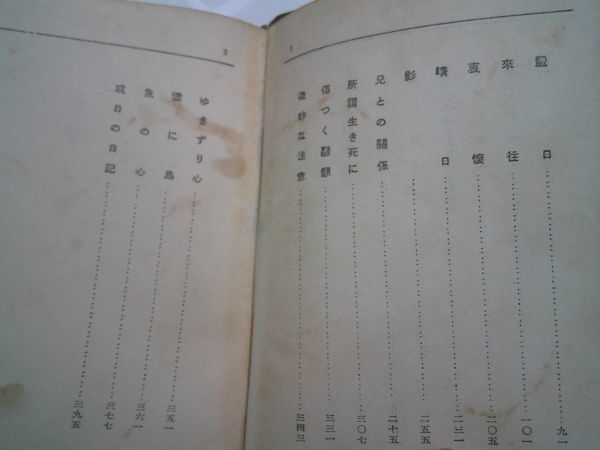 2
日……九一
來往……一〇一
哀懷……二〇五
曠日……二三一
影……二五五
兄との關係……二七五
所謂生き死に……三〇七
傷つく……三三一
微妙な注意……三四三
3
ゆきずり心……三五一
雲に鳥……三六一
魚の心……三七七
或日の日記……三九五